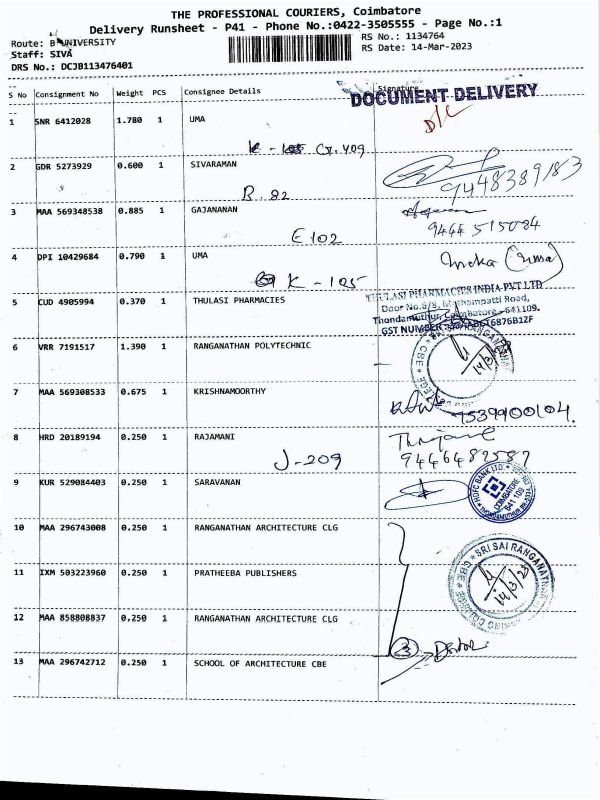 THE PROFESSIONAL COURIERS, Coimbatore
Delivery Runsheet - P41 - Phone No.:0422-3505555 - Page No.:1
Route: B UNIVERSITY
RS No.: 1134764
Staff: SIVA
RS Date: 14-Mar-2023
DRS No.: DCJB113476401
S No Consignment No Weight PCS Consignee Details Signature
DOCUMENT DELIVERY
1 SNR 6412028 1.780 1 UMA
D/L
2 GDR 5273929 0.600 1 SIVARAMAN
9448389183
B. 82
3 MAA 569348538 0.885 1 GAJANANAN
9444 515084
E102
4 DPI 10429684 0.790 1 UMA
(Uma)
K - 105
5 CUD 4905994 0.370 1 THULASI PHARMACIES
THULASI PHARMACIES INDIA PVT LTD
Door No.6/8, Road,
Thondamuthur, Coimbatore - 641109.
GST NUMBER
6 VRR 7191517 1.390 1 RANGANATHAN POLYTECHNIC
14/3/23
7 MAA 569308533 0.675 1 KRISHNAMOORTHY
7539900104.
8 HRD 20189194 0.250 1 RAJAMANI
9446482587
J-209
9 KUR 529084403 0.250 1 SARAVANAN
HDFC BANK LTD.
COIMBATORE
641 109
10 MAA 296743008 0.250 1 RANGANATHAN ARCHITECTURE CLG
SRI SAI RANGANATHAN
14/3/23
11 IXM 503223960 0.250 1 PRATHEEBA PUBLISHERS
12 MAA 858808837 0.250 1 RANGANATHAN ARCHITECTURE CLG
3
13 MAA 296742712 0.250 1 SCHOOL OF ARCHITECTURE CBE